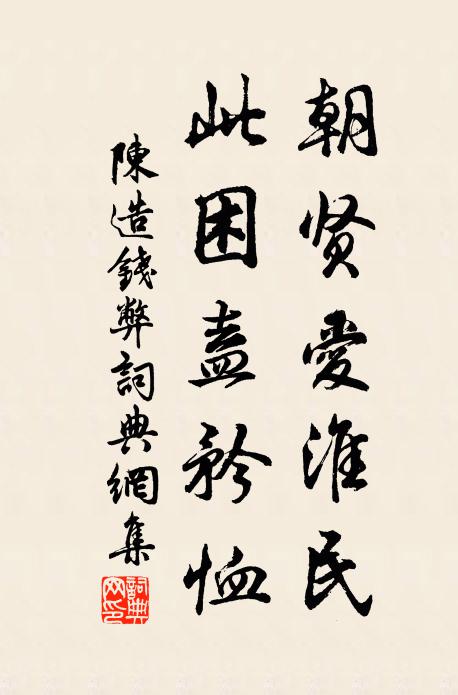 朝贤爱淮民
此困盍矜恤
陳造錢弊詞典網集
詞典網印